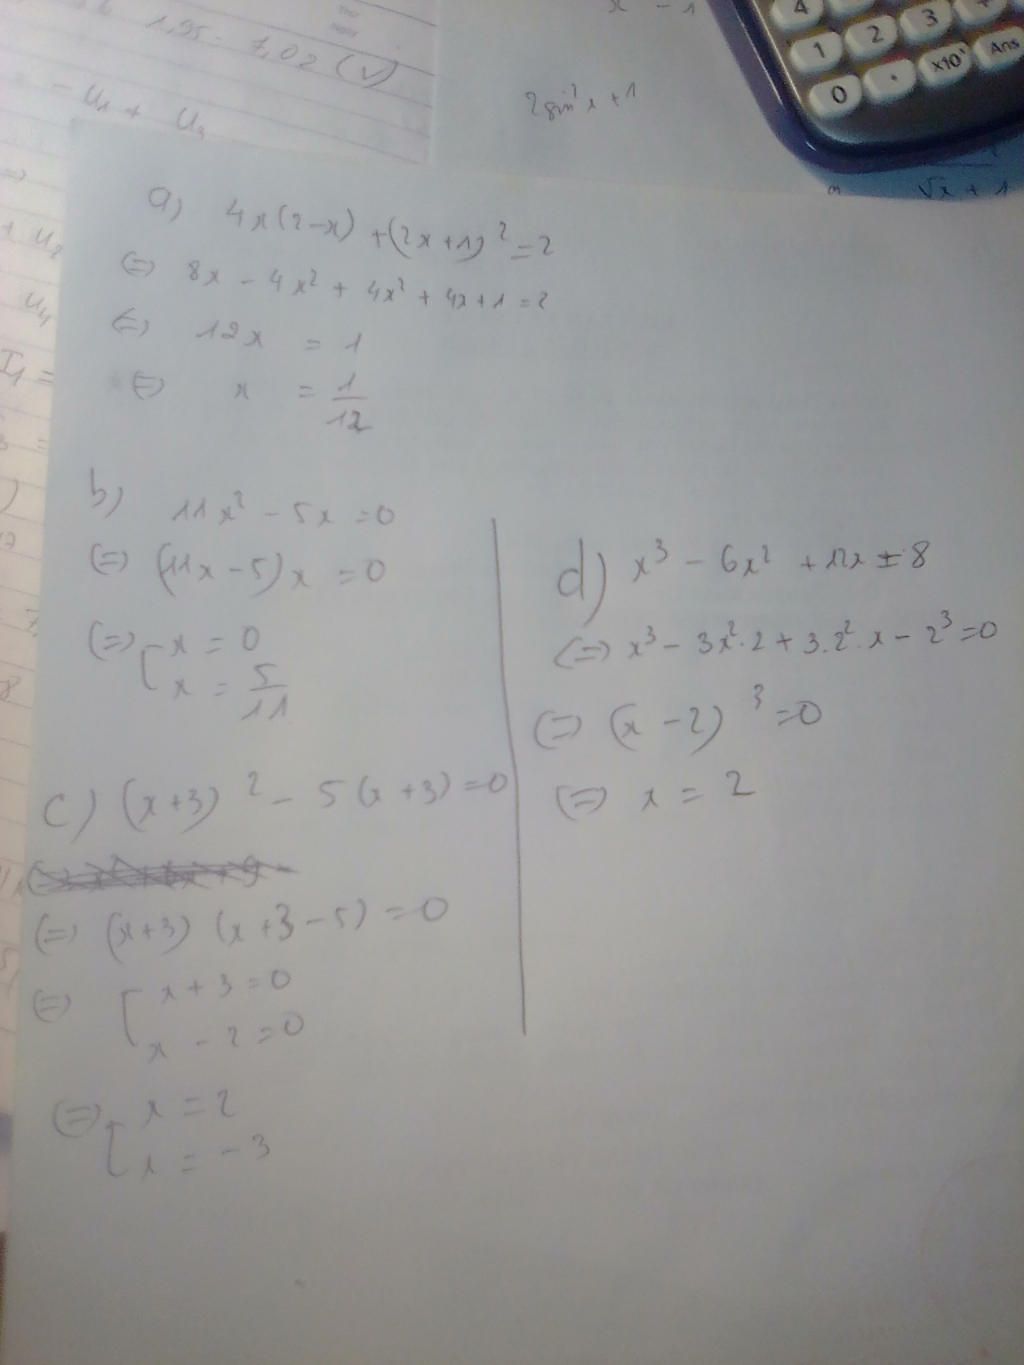 1,95 - 7,02 (V)
- U1 + U2
x - 1
2sin²x + 1
√x + 1
4
1 2 3 +
0 . ×10ˣ Ans
a) 4x(2-x) + (2x+1)² = 2
(=) 8x - 4x² + 4x² + 4x + 1 = 2
(=) 12x = 1
(=) x = 1/12
b) 11x² - 5x = 0
(=) (11x - 5)x = 0
(=) [ x = 0
x = 5/11
c) (x+3)² - 5(x+3) = 0
(=) (x+3) (x+3-5) = 0
(=) [ x + 3 = 0
x - 2 = 0
(=) [ x = 2
x = -3
d) x³ - 6x² + 12x = 8
(=) x³ - 3x².2 + 3.2².x - 2³ = 0
(=) (x - 2)³ = 0
(=) x = 2